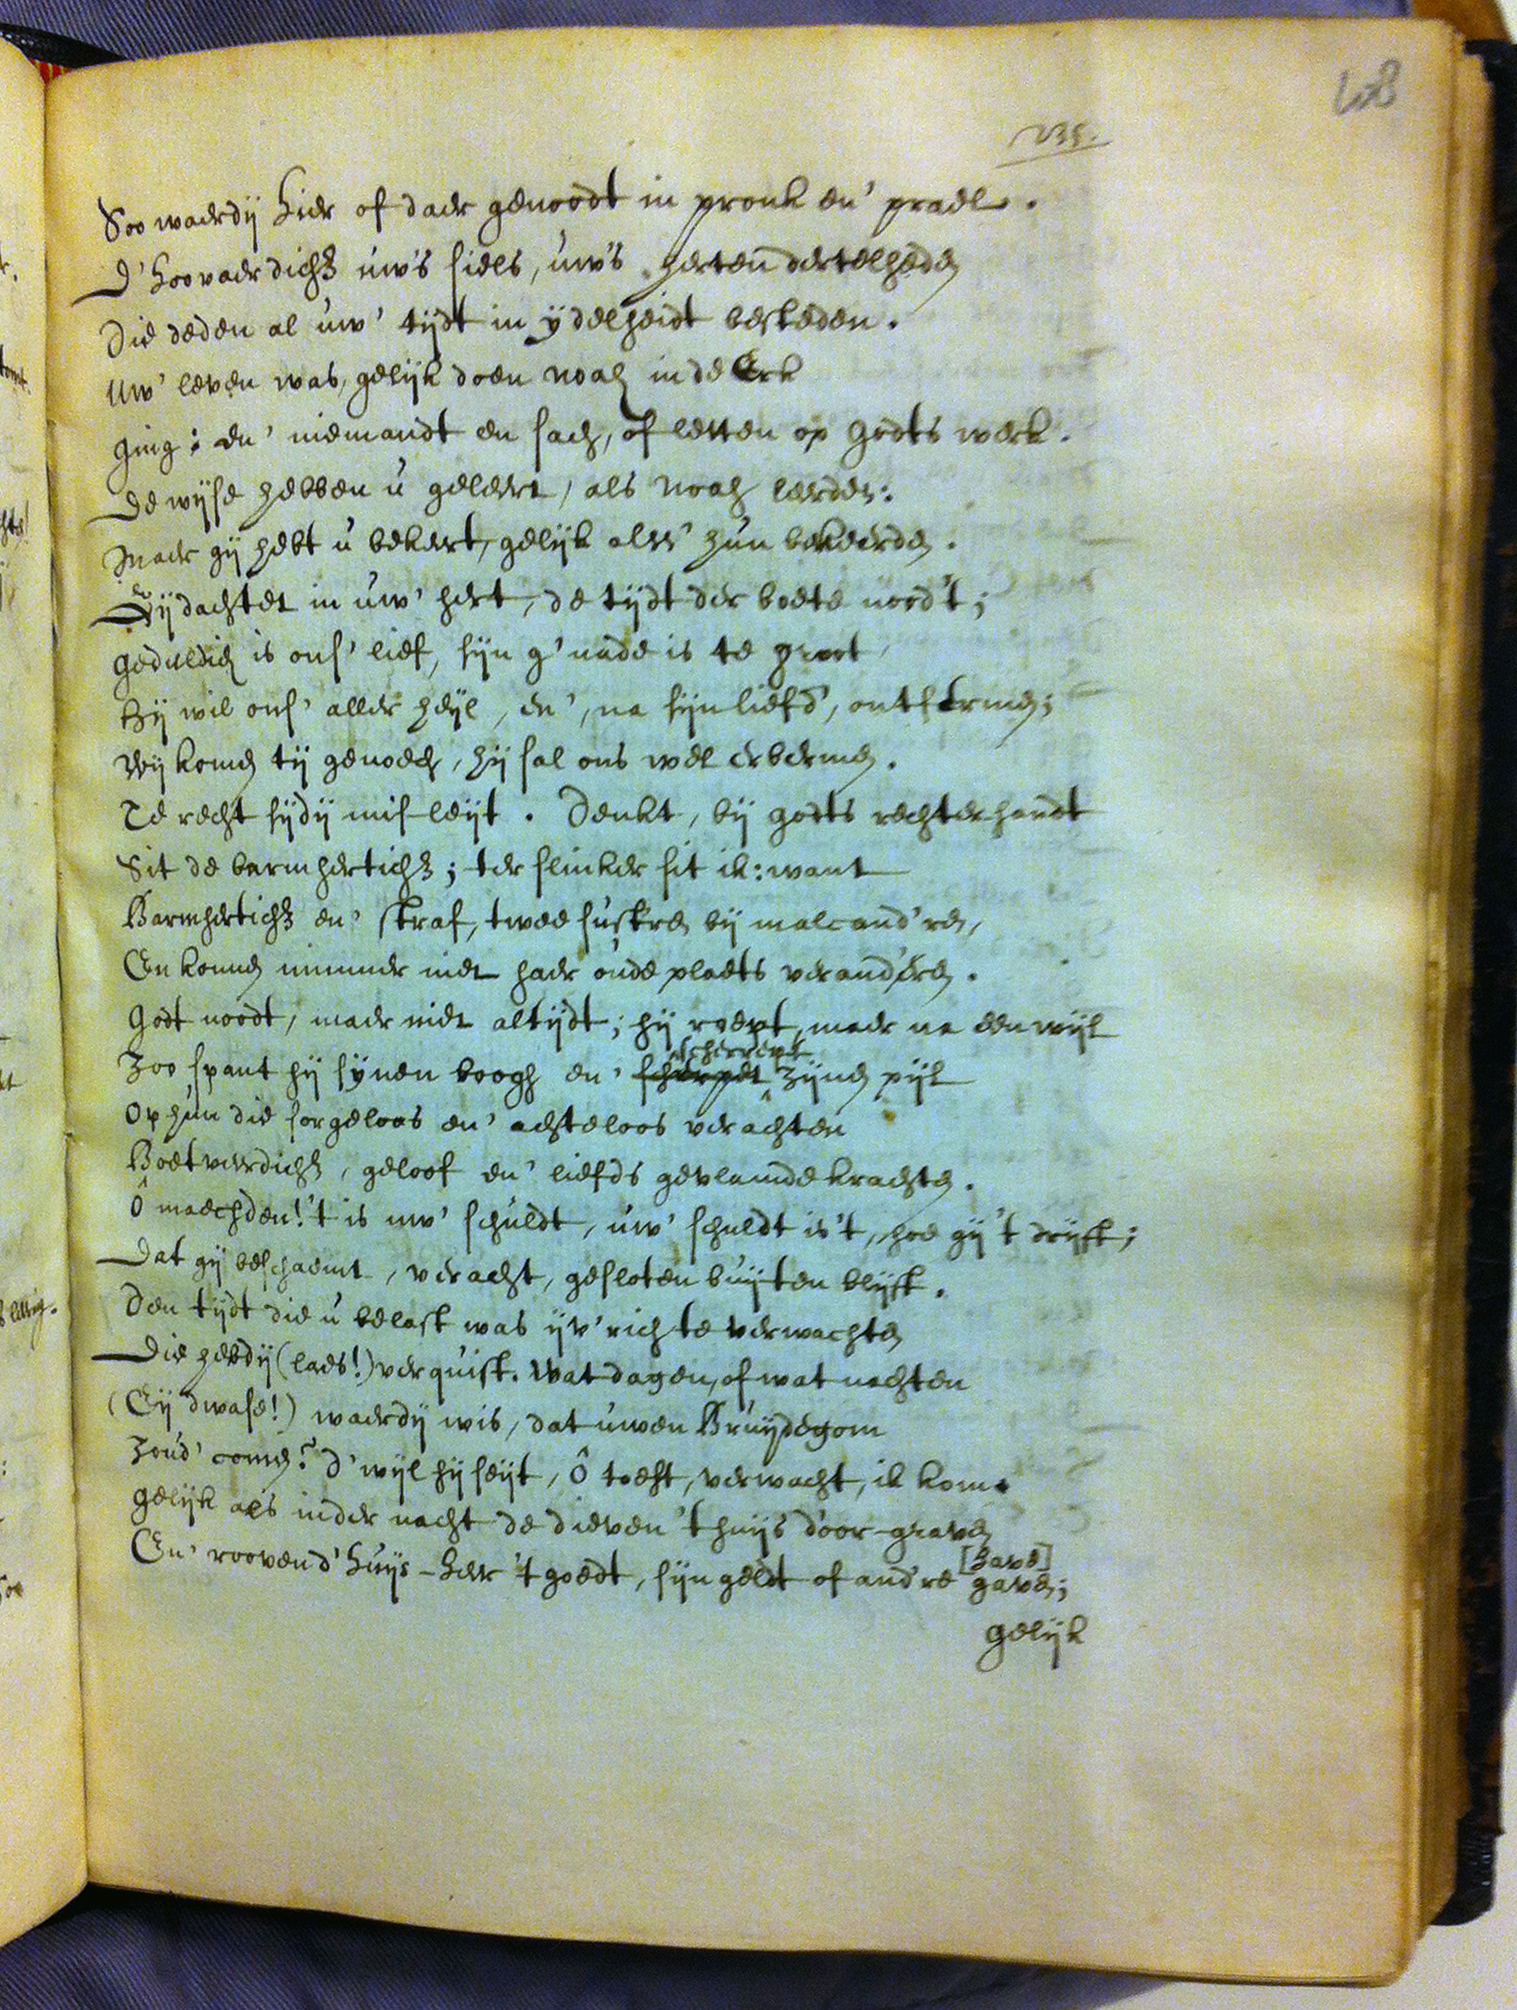 235.
Soo waerdij hier of daer genoodt in pronk en' prael.
D' hoovaerdich3 úws siels, úws herten dertelheden
Die deden al úw' tijdt in ÿdelheidt besteden.
Uw' leven was, gelijk doen Noah in de Erk
ging: en' niemandt en sach, of letten op Godts werk.
De wijse hebben ú geleert, als Noah leerden:
Maer gij hebt ú bekeert, gelijk als s' hún bekeerden.
Gij dachtet in úw' hert, de tijdt der boete noodt;
Geduldich is ons' lief, sijn g'nade is te groot
Hij wil ons' aller heijl, en', na sijn liefd', ontfermen;
Wij komen tij genoech, hij sal ons wel erbermen.
Te recht sijdij misleijt. Denkt, bij Godts rechterhandt
Sit de barmhertich3; ter slinker sit ik: want
Barmhertich3 en' straf, twee sústren bij malcand'ren,
En konnen nimmer niet haer oúde plaets verand'ren.
Godt noodt, maer niet altijdt; hij roept, maer na een wijl
Zoo spant hij sijnen boogh en' scherpet scherrept zijnen pijl
Op hún die sorgeloos en' achteloos verachten
Boetverdich3, geloof en' liefds gevlamde krachten.
Ô maechden! 't is uw' schúldt, úw' schuldt is 't, hoe gij 't drijft;
Dat gij beschaemt, veracht, gesloten búijten blijft.
Den tijdt die ú belast was ijv'rich te verwachten
Die hebdij (laes!) verquist. Wat dagen, of wat nachten
(Eij dwase!) waerdij wis, dat úwen Brúijdegom
Zoúd' comen? d' wijl hij seijt, ô toeft, verwacht, ik kom.
Gelijk als in der nacht de dieven 't huijs door-graven
En' rooven d' húijs-heer 't goedt, sijn geldt of and're gaven; [have]
gelijk